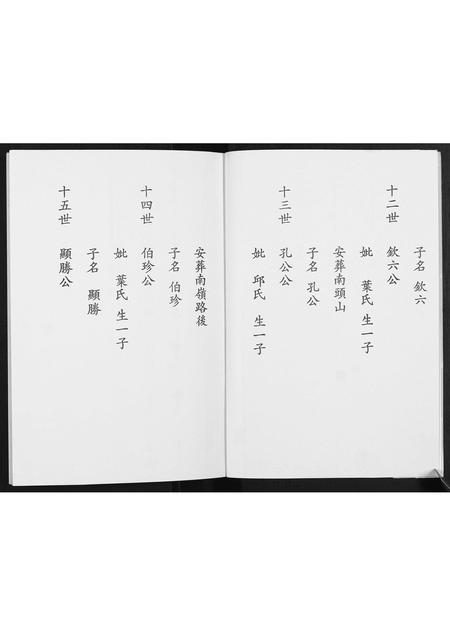 子名 欽六
十二世 欽六公
妣 葉氏 生一子
安葬南頭山
子名 孔公
十三世 孔公公
妣 邱氏 生一子
安葬南嶺路後
子名 伯珍
十四世 伯珍公
妣 葉氏 生一子
子名 顯勝
十五世 顯勝公